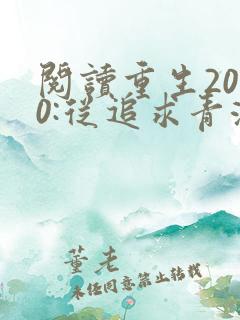 閱讀重生20
0:從追求青
董老
未經同意禁止轉載